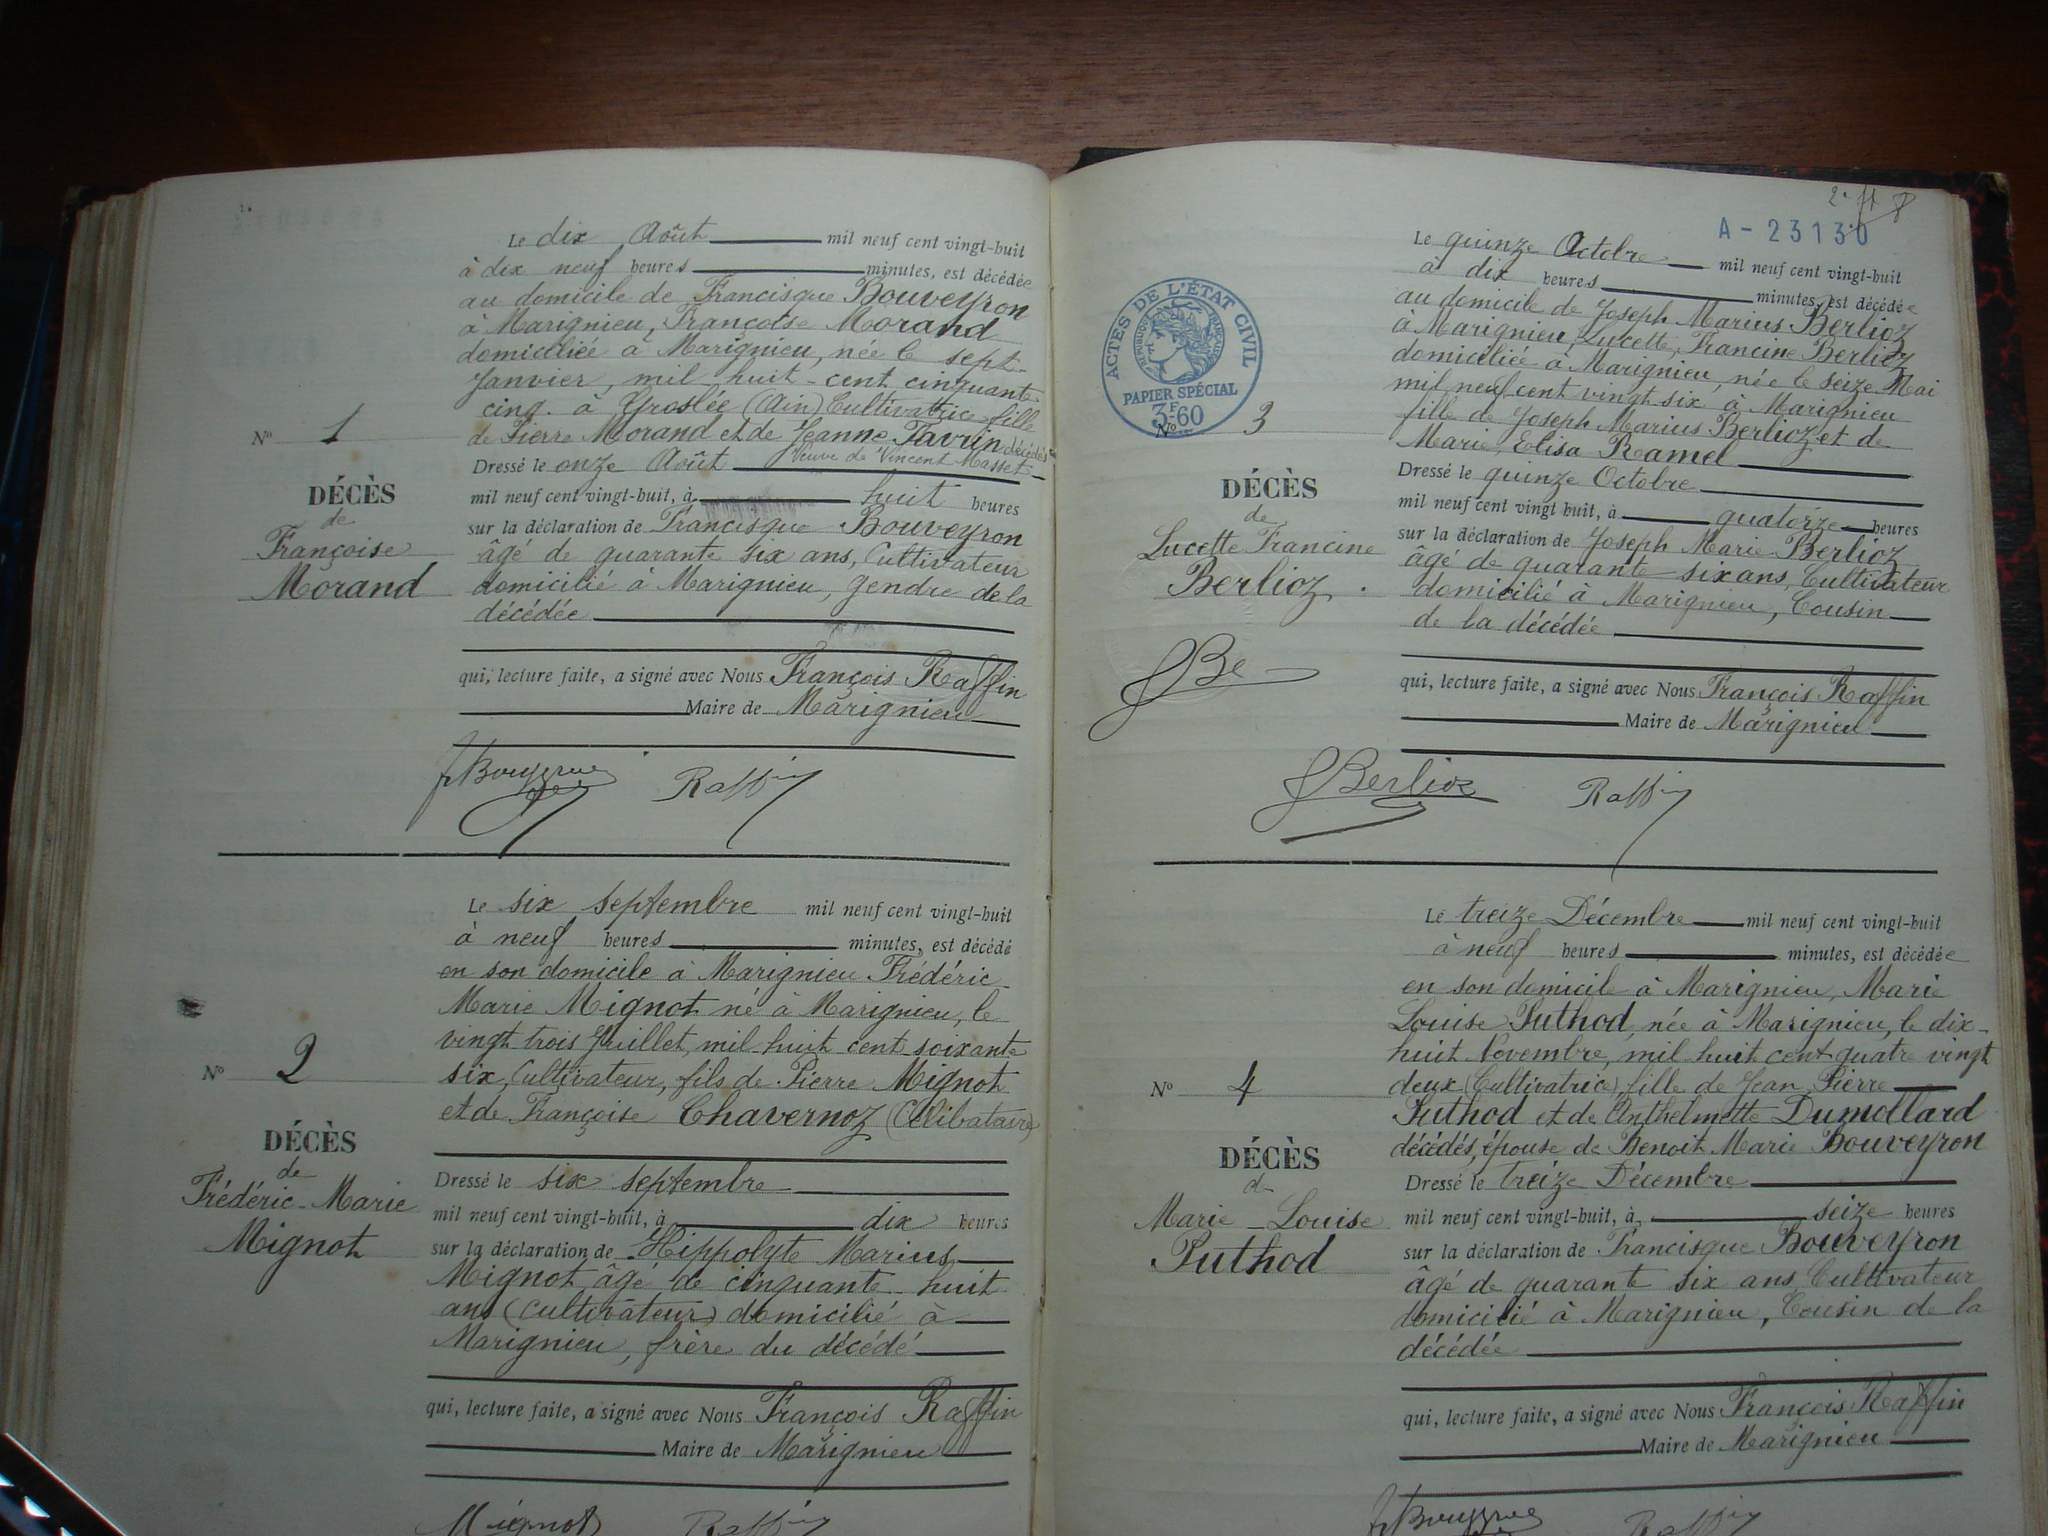 Le dix Août mil neuf cent vingt-huit
à dix neuf heures minutes, est décédée
au domicile de Francisque Bouveyron
à Marignieu, Françoise Morand
domiciliée à Marignieu, née le sept
Janvier, mil huit-cent cinquante
cinq. à Groslée (Ain) Cultivatrice fille
de Pierre Morand et de Jeanne Tavrin décédés
Veuve de Vincent Masset
Nº 1
Dressé le onze Août
mil neuf cent vingt-huit, à huit heures
DÉCÈS
de
Françoise
Morand
sur la déclaration de Francisque Bouveyron
âgé de quarante six ans, Cultivateur
domicilié à Marignieu, gendre de la
décédée
qui, lecture faite, a signé avec Nous François Raffin
Maire de Marignieu
Raffin
Le six septembre mil neuf cent vingt-huit
à neuf heures minutes, est décédé
en son domicile à Marignieu Frédéric
Marie Mignot né à Marignieu, le
vingt trois Juillet, mil huit cent soixante
six, Cultivateur, fils de Pierre Mignot
et de Françoise Chavernoz (Célibataire)
Nº 2
DÉCÈS
de
Frédéric-Marie
Mignot
Dressé le six septembre
mil neuf cent vingt-huit, à dix heures
sur la déclaration de Hippolyte Marius
Mignot, âgé de cinquante-huit
ans (cultivateur) domicilié à
Marignieu, frère du décédé
qui, lecture faite, a signé avec Nous François Raffin
Maire de Marignieu
Mignot Raffin
A-23130
ACTES DE L'ÉTAT CIVIL
RÉPUBLIQUE FRANÇAISE
PAPIER SPÉCIAL
3F60
Le quinze Octobre mil neuf cent vingt-huit
à dix heures minutes, est décédée
au domicile de Joseph Marius Berlioz
à Marignieu, Lucette, Francine Berlioz
domiciliée à Marignieu, née le seize Mai
mil neuf cent vingt six à Marignieu
fille de Joseph Marius Berlioz et de
Marie, Elisa Ramel
Nº 3
DÉCÈS
de
Lucette Francine
Berlioz
Dressé le quinze Octobre
mil neuf cent vingt huit, à quatorze heures
sur la déclaration de Joseph Marie Berlioz
âgé de quarante six ans, Cultivateur
domicilié à Marignieu, Cousin
de la décédée
qui, lecture faite, a signé avec Nous François Raffin
Maire de Marignieu
JBe
JBerlioz Raffin
Le treize Décembre mil neuf cent vingt-huit
à neuf heures minutes, est décédée
en son domicile à Marignieu, Marie
Louise Puthod, née à Marignieu, le dix-
huit Novembre, mil huit cent quatre vingt
deux (Cultivatrice), fille de Jean Pierre
Puthod et de Anthelmette Dumollard
décédés, épouse de Benoit Marie Bouveyron
Nº 4
DÉCÈS
d
Marie-Louise
Puthod
Dressé le treize Décembre
mil neuf cent vingt-huit, à seize heures
sur la déclaration de Francisque Bouveyron
âgé de quarante six ans Cultivateur
domicilié à Marignieu, Cousin de la
décédée
qui, lecture faite, a signé avec Nous François Raffin
Maire de Marignieu
Raffin